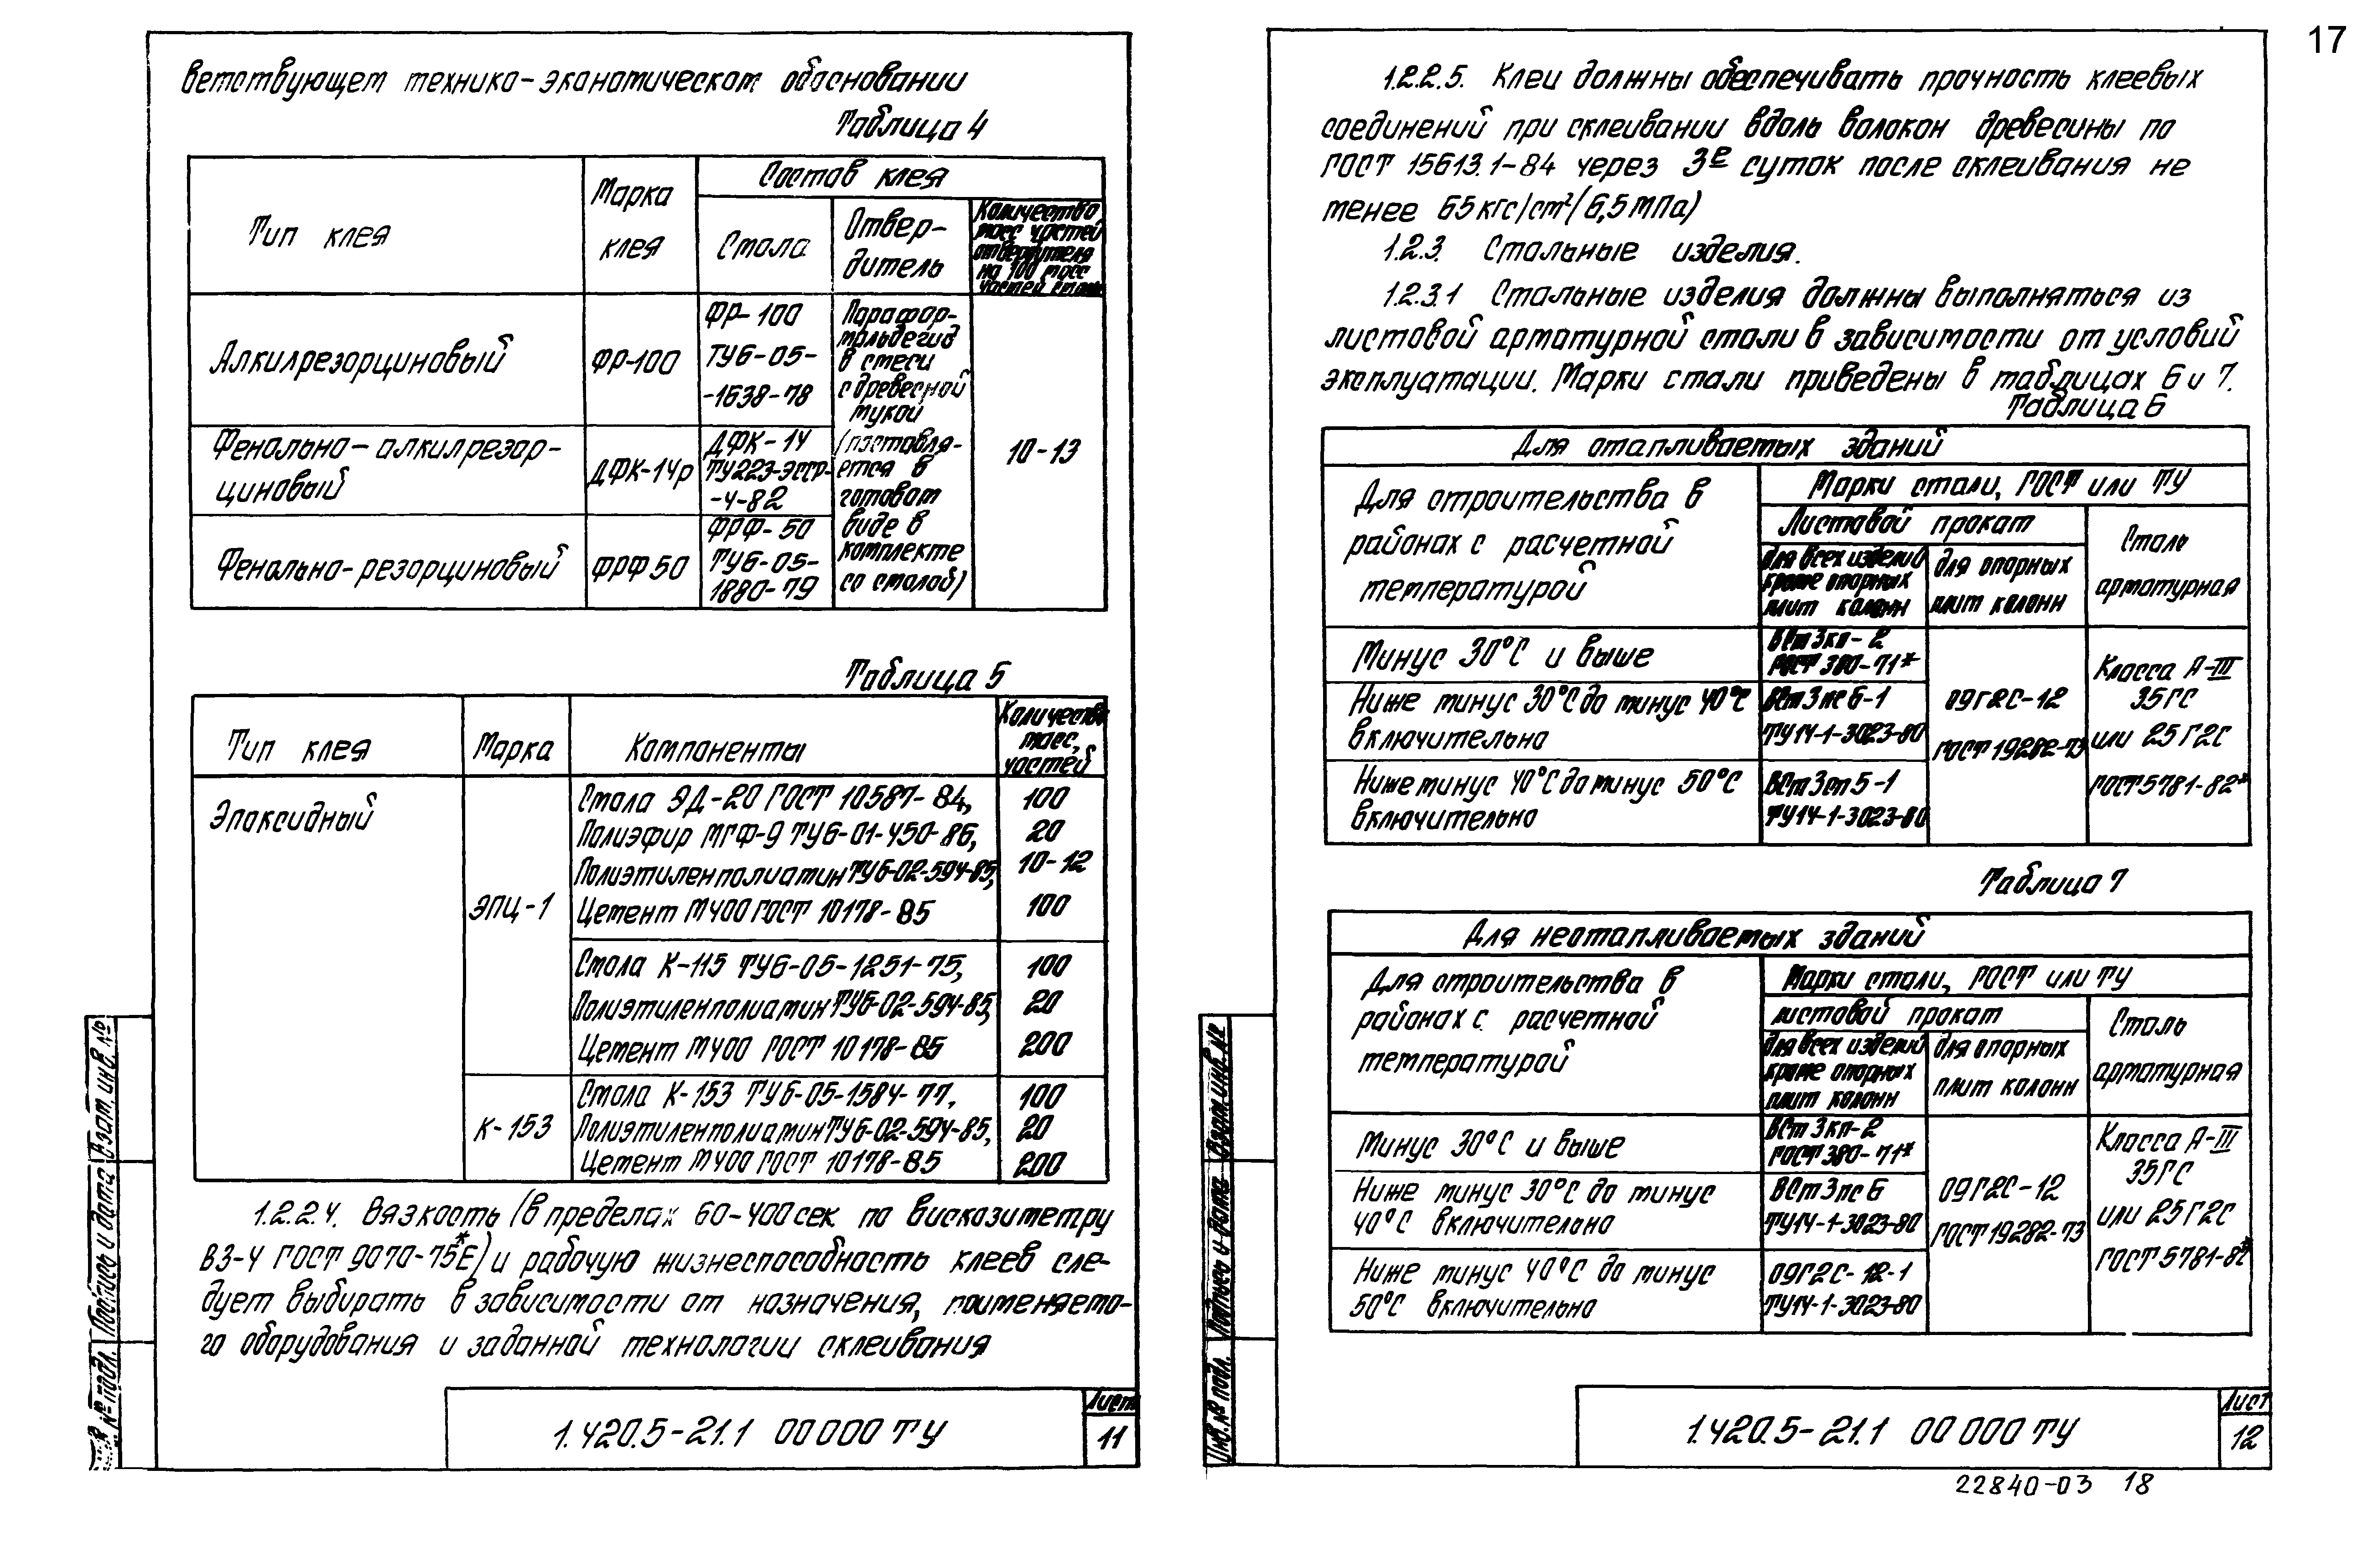 17
ветствующем технико-экономическом обосновании
Таблица 4
Тип клея
Марка
клея
Состав клея
Смола
Отвер-
дитель
Количество
масс частей
отвердителя
на 100 масс
частей смолы
Алкилрезорциновый
ФР-100
ФР-100
ТУ6-05-
-1638-78
Парафор-
мальдегид
в смеси
с древесной
мукой
(поставля-
ется в
готовом
виде в
комплекте
со смолой)
10-13
Фенольно-алкилрезор-
циновый
ДФК-14р
ДФК-14
ТУ223-ЭССР-
-4-82
Фенольно-резорциновый
ФРФ50
ФРФ-50
ТУ6-05-
1880-79
Таблица 5
Тип клея
Марка
Компоненты
Количество
масс,
частей
Эпоксидный
ЭПЦ-1
Смола ЭД-20 ГОСТ 10587-84, 100
Полиэфир МГФ-9 ТУ6-01-450-86, 20
Полиэтиленполиамин ТУ6-02-594-85, 10-12
Цемент М400 ГОСТ 10178-85 100
Смола К-115 ТУ6-05-1251-75, 100
Полиэтиленполиамин ТУ6-02-594-85, 20
Цемент М400 ГОСТ 10178-85 200
К-153
Смола К-153 ТУ6-05-1584-77, 100
Полиэтиленполиамин ТУ6-02-594-85, 20
Цемент М400 ГОСТ 10178-85 200
1.2.2.4. Вязкость (в пределах 60-400 сек по вискозиметру
ВЗ-4 ГОСТ 9070-75*Е) и рабочую жизнеспособность клеев сле-
дует выбирать в зависимости от назначения, применяемо-
го оборудования и заданной технологии склеивания
Взам. инв. №
Подпись и дата
№ подл.
1.420.5-21.1 00 000 ТУ
Лист
11
1.2.2.5. Клеи должны обеспечивать прочность клеевых
соединений при склеивании вдоль волокон древесины по
ГОСТ 15613.1-84 через 3е суток после склеивания не
менее 65 кгс/см²/6,5 МПа)
1.2.3. Стальные изделия.
1.2.3.1 Стальные изделия должны выполняться из
листовой арматурной стали в зависимости от условий
эксплуатации. Марки стали приведены в таблицах 6 и 7.
Таблица 6
Для отапливаемых зданий
Для строительства в
районах с расчетной
температурой
Марки стали, ГОСТ или ТУ
Листовой прокат
для всех изделий
кроме опорных
плит колонн
для опорных
плит колонн
Сталь
арматурная
Минус 30°С и выше
ВСт3кп-2
ГОСТ 380-71*
Ниже минус 30°С до минус 40°С
включительно
ВСт3пс6-1
ТУ14-1-3023-80
Ниже минус 40°С до минус 50°С
включительно
ВСт3сп5-1
ТУ14-1-3023-80
09Г2С-12
ГОСТ 19282-73
Класса А-III
35ГС
или 25Г2С
ГОСТ 5781-82*
Таблица 7
Для неотапливаемых зданий
Для строительства в
районах с расчетной
температурой
Марки стали, ГОСТ или ТУ
листовой прокат
для всех изделий
кроме опорных
плит колонн
для опорных
плит колонн
Сталь
арматурная
Минус 30°С и выше
ВСт3кп-2
ГОСТ 380-71*
Ниже минус 30°С до минус
40°С включительно
ВСт3пс6
ТУ14-1-3023-80
Ниже минус 40°С до минус
50°С включительно
09Г2С-12-1
ТУ14-1-3023-80
09Г2С-12
ГОСТ 19282-73
Класса А-III
35ГС
или 25Г2С
ГОСТ 5781-82*
Взам. инв. №
Подпись и дата
Инв. № подл.
1.420.5-21.1 00 000 ТУ
Лист
12
22840-03 18